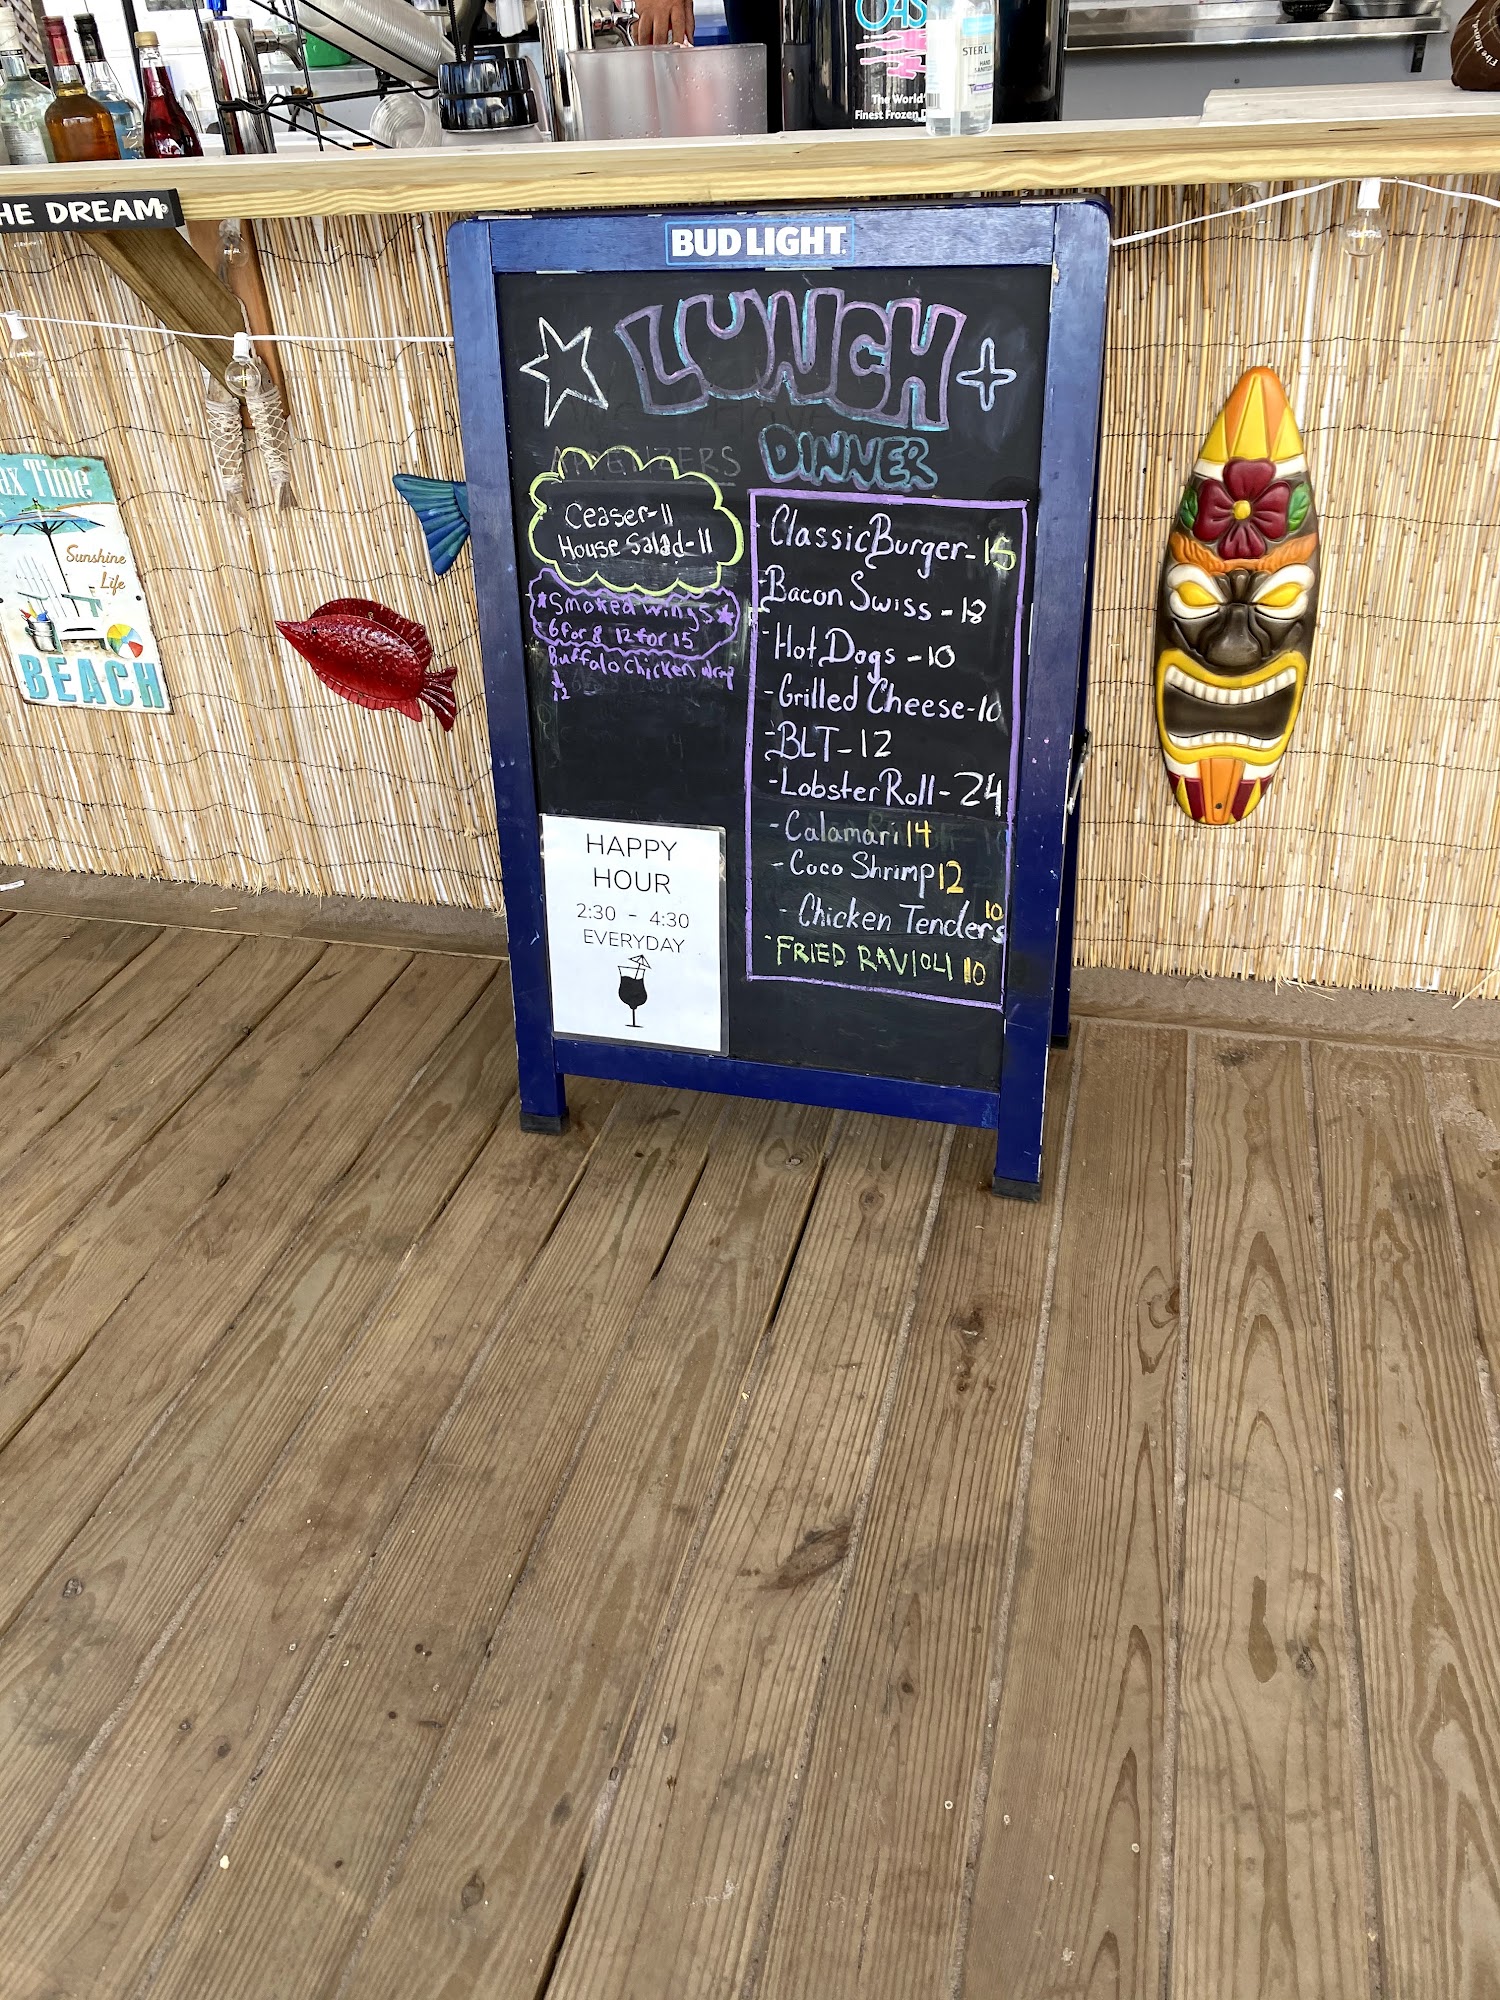 OAS
STER L
HAND
SANITIZER
The World'
Finest Frozen D
HE DREAM
BUD LIGHT
LUNCH +
DINNER
APPETIZERS
Ceaser-11
House Salad-11
*Smoked Wings*
6 for 8 12 for 15
Buffalo Chicken Wrap
12
Classic Burger-15
-Bacon Swiss-18
-Hot Dogs-10
-Grilled Cheese-10
-BLT-12
-Lobster Roll-24
-Calamari 14
-Coco Shrimp 12
-Chicken Tenders 10
-FRIED RAVIOLI 10
HAPPY
HOUR
2:30 - 4:30
EVERYDAY
ax Time
Sunshine
Life
BEACH